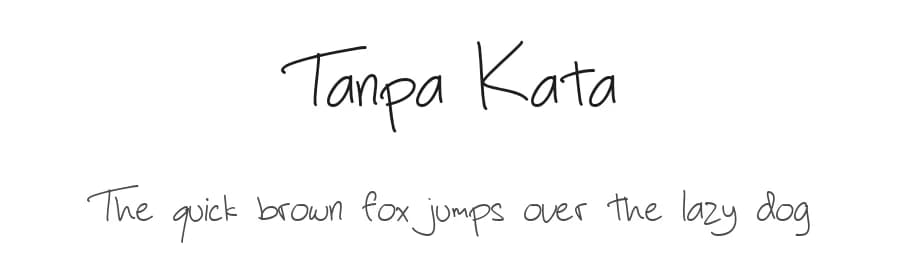 Tanpa Kata
The quick brown fox jumps over the lazy dog